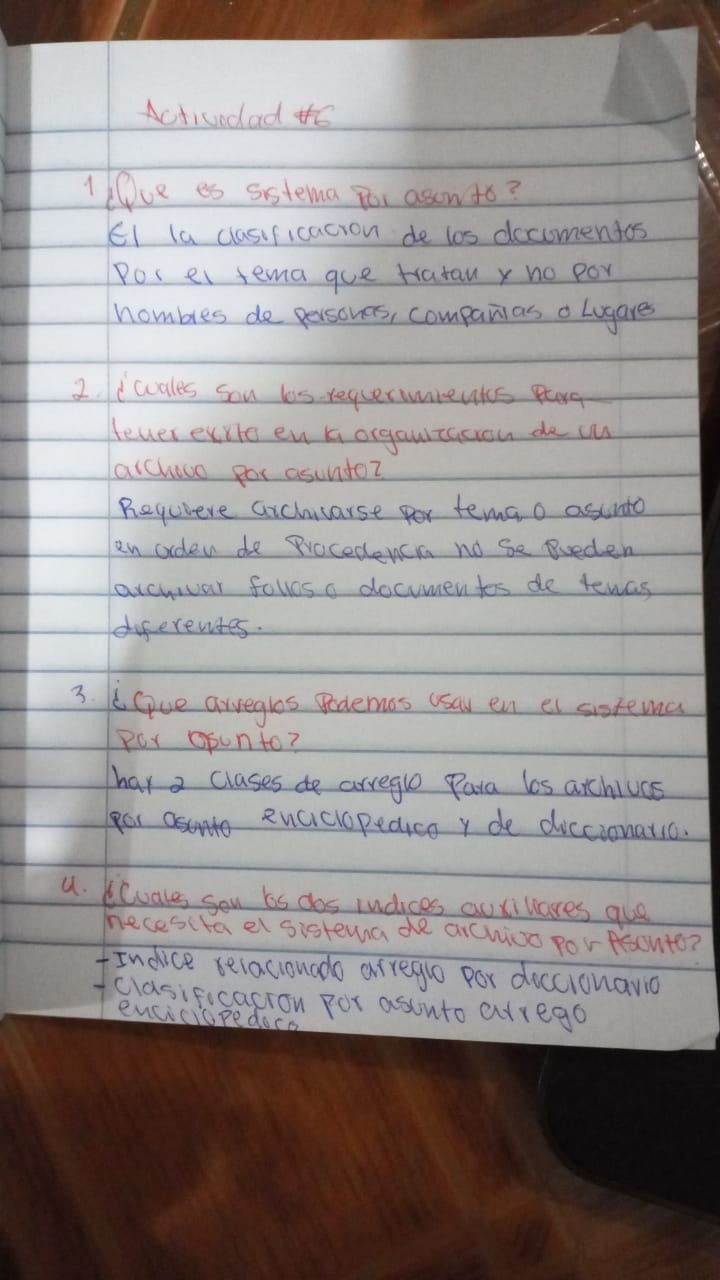 Actividad #6
1. ¿Que es sistema Por asonto?
El la clasificacion de los documentos
Por el tema que tratan y no por
nombres de personas, compañias o Lugares
2. ¿Cuales son los requerimientos Para
tener exito en la organizacion de un
archivo por asunto?
Requiere archivarse por tema o asunto
en orden de Procedencia no se Pueden
archivar folios o documentos de temas
diferentes.
3. ¿Que arreglos Podemos usar en el sistema
Por asunto?
hay 2 clases de arreglo Para los archivos
por asunto enciclopedico y de diccionario.
4. ¿Cuales son los dos indices auxiliares que
necesita el sistema de archivo por Asunto?
-Indice relacionado arreglo por diccionario
-Clasificacion por asunto arrego
enciclopedico